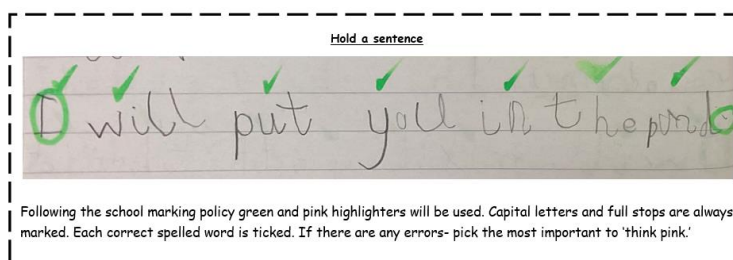 Hold a sentence
I will put you in the pond.
Following the school marking policy green and pink highlighters will be used. Capital letters and full stops are always
marked. Each correct spelled word is ticked. If there are any errors- pick the most important to ‘think pink.’